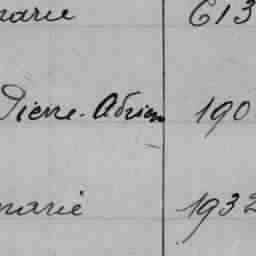 marie 613
Pierre-Adrien 190
marié 1932